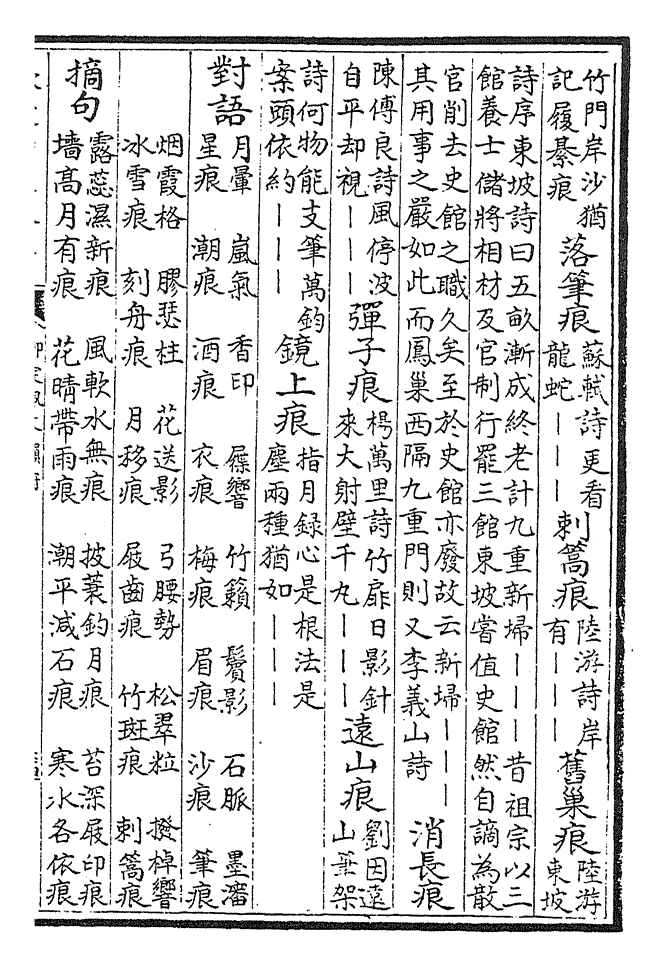 竹門岸沙猶
記履綦痕
落筆痕
蘇軾詩更看
龍蛇｜｜｜
刺篙痕
陸游詩岸
有｜｜｜
舊巢痕
陸游
東坡
詩序東坡詩曰五畝漸成終老計九重新埽｜｜｜昔祖宗以三
館養士儲將相材及官制行罷三館東坡嘗值史館然自謫為散
官削去史館之職久矣至於史館亦廢故云新埽｜｜｜
其用事之嚴如此而鳳巢西隔九重門則又李義山詩
消長痕
陳傅良詩風停波
自平却視｜｜｜
彈子痕
楊萬里詩竹扉日影針
來大射壁千丸｜｜｜
遠山痕
劉因遠
山筆架
詩何物能支筆萬鈞
案頭依約｜｜｜
鏡上痕
指月録心是根法是
塵兩種猶如｜｜｜
對語
月暈 嵐氣 香印 屧響 竹籟 鬢影 石脈 墨瀋
星痕 潮痕 酒痕 衣痕 梅痕 眉痕 沙痕 筆痕
烟霞格 膠瑟柱 花送影 弓腰勢 松翠粒 撥棹響
冰雪痕 刻舟痕 月移痕 屐齒痕 竹斑痕 刺篙痕
摘句
露蕊濕新痕 風軟水無痕 披蓑釣月痕 苔深屐印痕
墻高月有痕 花晴帶雨痕 潮平減石痕 寒水各依痕